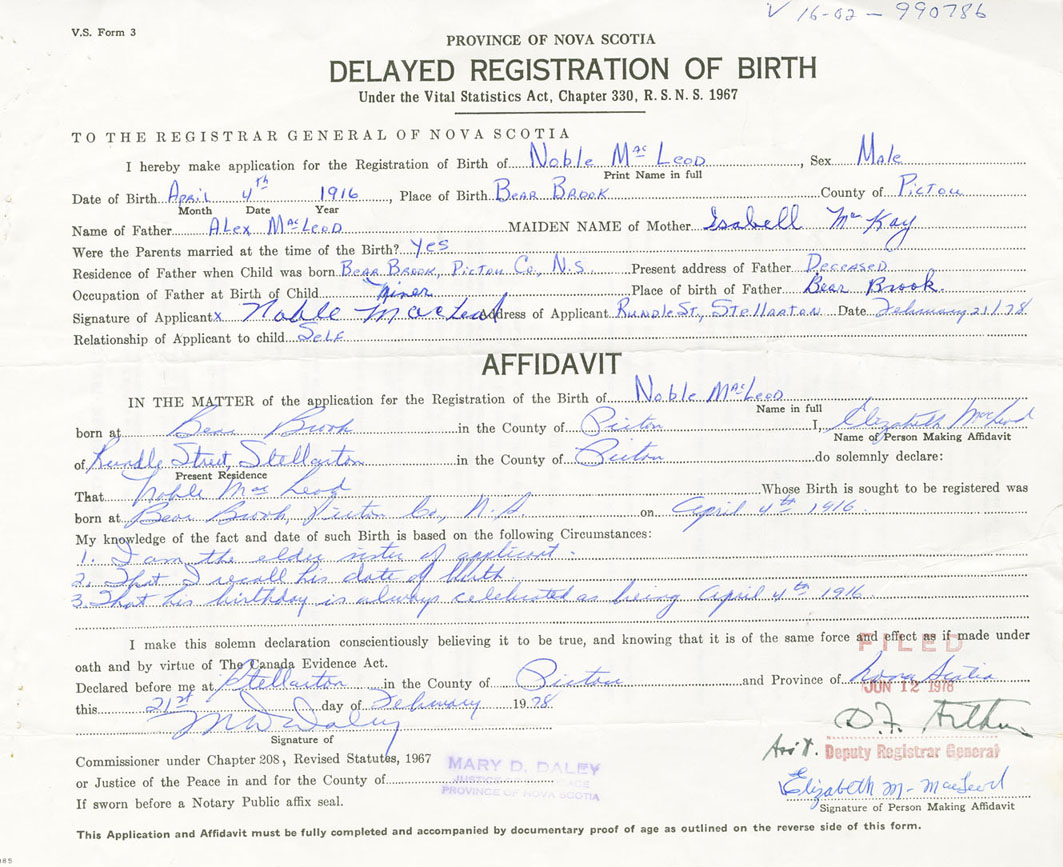 V 16-02-990786
V.S. Form 3
PROVINCE OF NOVA SCOTIA
DELAYED REGISTRATION OF BIRTH
Under the Vital Statistics Act, Chapter 330, R.S.N.S. 1967
TO THE REGISTRAR GENERAL OF NOVA SCOTIA
I hereby make application for the Registration of Birth of Noble MacLeod, Sex Male
Print Name in full
Date of Birth April 4th 1916, Place of Birth Bear Brook County of Pictou
Month Date Year
Name of Father Alex MacLeod MAIDEN NAME of Mother Isabell McKay
Were the Parents married at the time of the Birth? Yes
Residence of Father when Child was born Bear Brook, Pictou Co., N.S. Present address of Father Deceased
Occupation of Father at Birth of Child Miner Place of birth of Father Bear Brook.
Signature of Applicant x Noble MacLeod Address of Applicant Rundle St., Stellarton Date February 21/78
Relationship of Applicant to child Self
AFFIDAVIT
IN THE MATTER of the application for the Registration of the Birth of Noble MacLeod
Name in full
born at Bear Brook in the County of Pictou I, Elizabeth MacLeod
Name of Person Making Affidavit
of Rundle Street, Stellarton in the County of Pictou do solemnly declare:
Present Residence
That Noble MacLeod Whose Birth is sought to be registered was
born at Bear Brook, Pictou Co., N.S. on April 4th 1916.
My knowledge of the fact and date of such Birth is based on the following Circumstances:
1. I am the elder sister of applicant.
2. That I recall his date of birth
3. That his birthday is always celebrated as being April 4th 1916.
I make this solemn declaration conscientiously believing it to be true, and knowing that it is of the same force and effect as if made under
FILED
oath and by virtue of The Canada Evidence Act.
Declared before me at Stellarton in the County of Pictou and Province of Nova Scotia
JUN 12 1978
this 21st day of February 1978
M D Daley
D.F. Arthur
Signature of
Ass't. Deputy Registrar General
Commissioner under Chapter 208, Revised Statutes, 1967
MARY D. DALEY
or Justice of the Peace in and for the County of
JUSTICE OF THE PEACE
PROVINCE OF NOVA SCOTIA
Elizabeth M. MacLeod
If sworn before a Notary Public affix seal.
Signature of Person Making Affidavit
This Application and Affidavit must be fully completed and accompanied by documentary proof of age as outlined on the reverse side of this form.